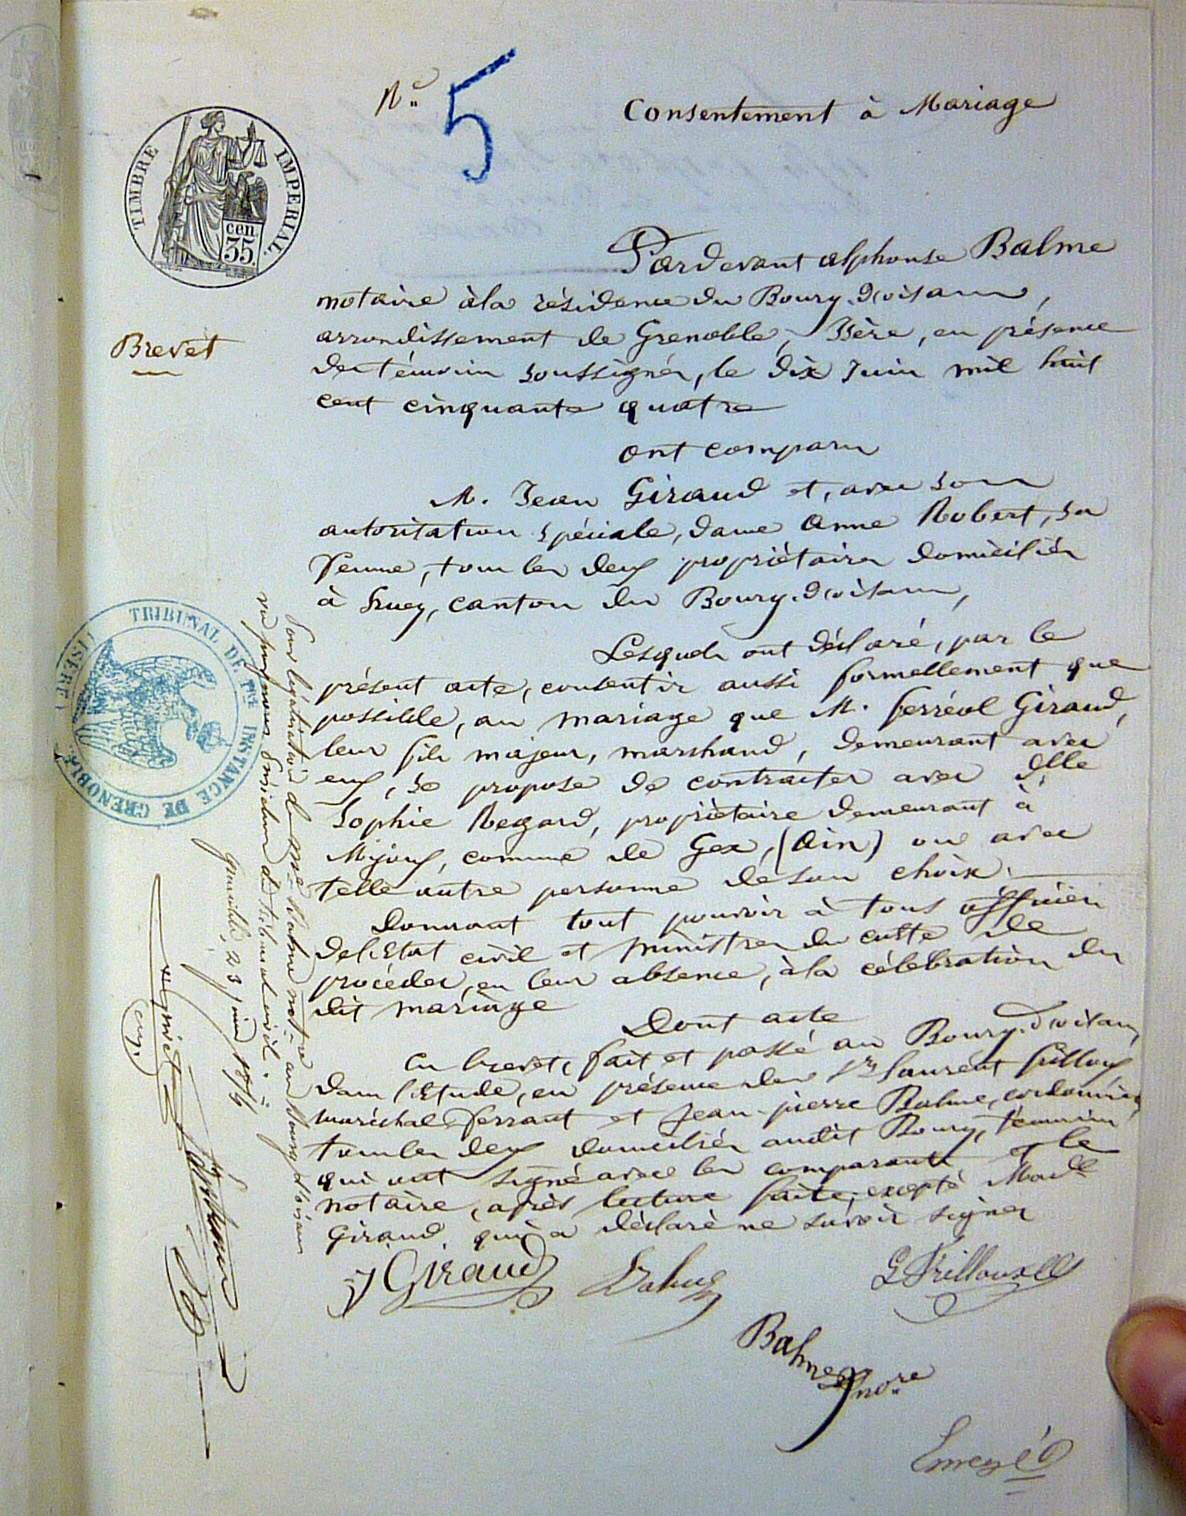 N.º 5
Consentement à Mariage
TIMBRE IMPERIAL.
cen.
35.
Brevet
Pardevant alphonse Balme
notaire àla résidence du Bourg d'oisans,
arrondissement de Grenoble, Isère, en présence
des témoins soussignés, le dix Juin mil huit
cent cinquante quatre
ont comparu
M. Jean Giraud et, avec son
autorisation spéciale, dame Anne Robert, sa
femme, tous les deux propriétaires domiciliés
à huez, canton du Bourg d'oisans,
Lesquels ont déclaré, par le
présent acte, consentir aussi formellement que
possible, au mariage que M. ferréol Giraud,
leur fils majeur, marchand, demeurant avec
eux, se propose de contracter avec dlle
Sophie Regard, propriétaire demeurant à
Mijoux, commune de Gex, (Ain) ou avec
telle autre personne de son choix.
Donnant tout pouvoir à tous officiers
del'Etat civil et ministres du culte de
procéder, en leur absence, àla célébration du
dit mariage
Dont acte
en brevet, fait et passé au Bourg d'oisans,
dans l'Etude, en présence des Srs Laurent frilloux
maréchal ferrant et Jean-pierre Balme, cordonnier
tous les deux domiciliés audit Bourg, témoins
qui ont signé avec les comparants et le
notaire, après lecture faite, excepté Made
Giraud qui a déclaré ne savoir signer
J Giraud
L Frilloux
Balme nore
TRIBUNAL DE 1re INSTANCE DE GRENOBLE (ISÈRE)
Pour légalisation de Me Balme notre au Bourg d'oisans
par nous Président du tribunal civil.
Grenoble, 23 juin 1854